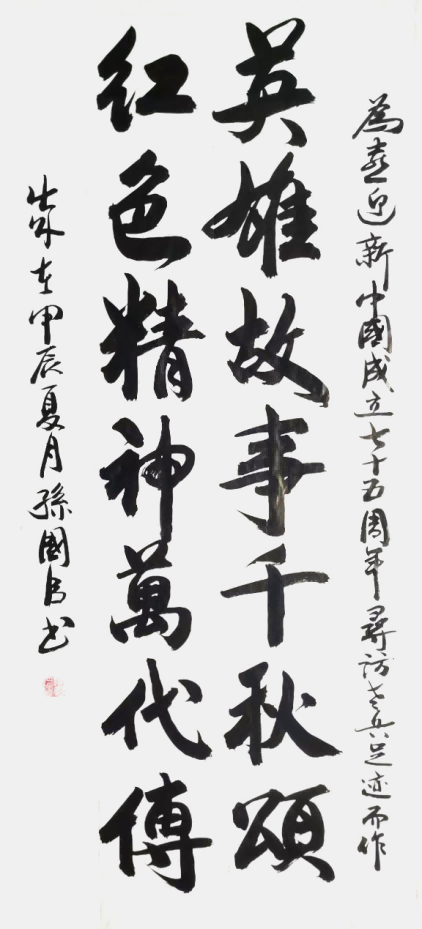 為喜迎新中國成立七十五周年尋訪老兵足迹而作
英雄故事千秋頌
红色精神萬代傳
歲在甲辰夏月孫國良书